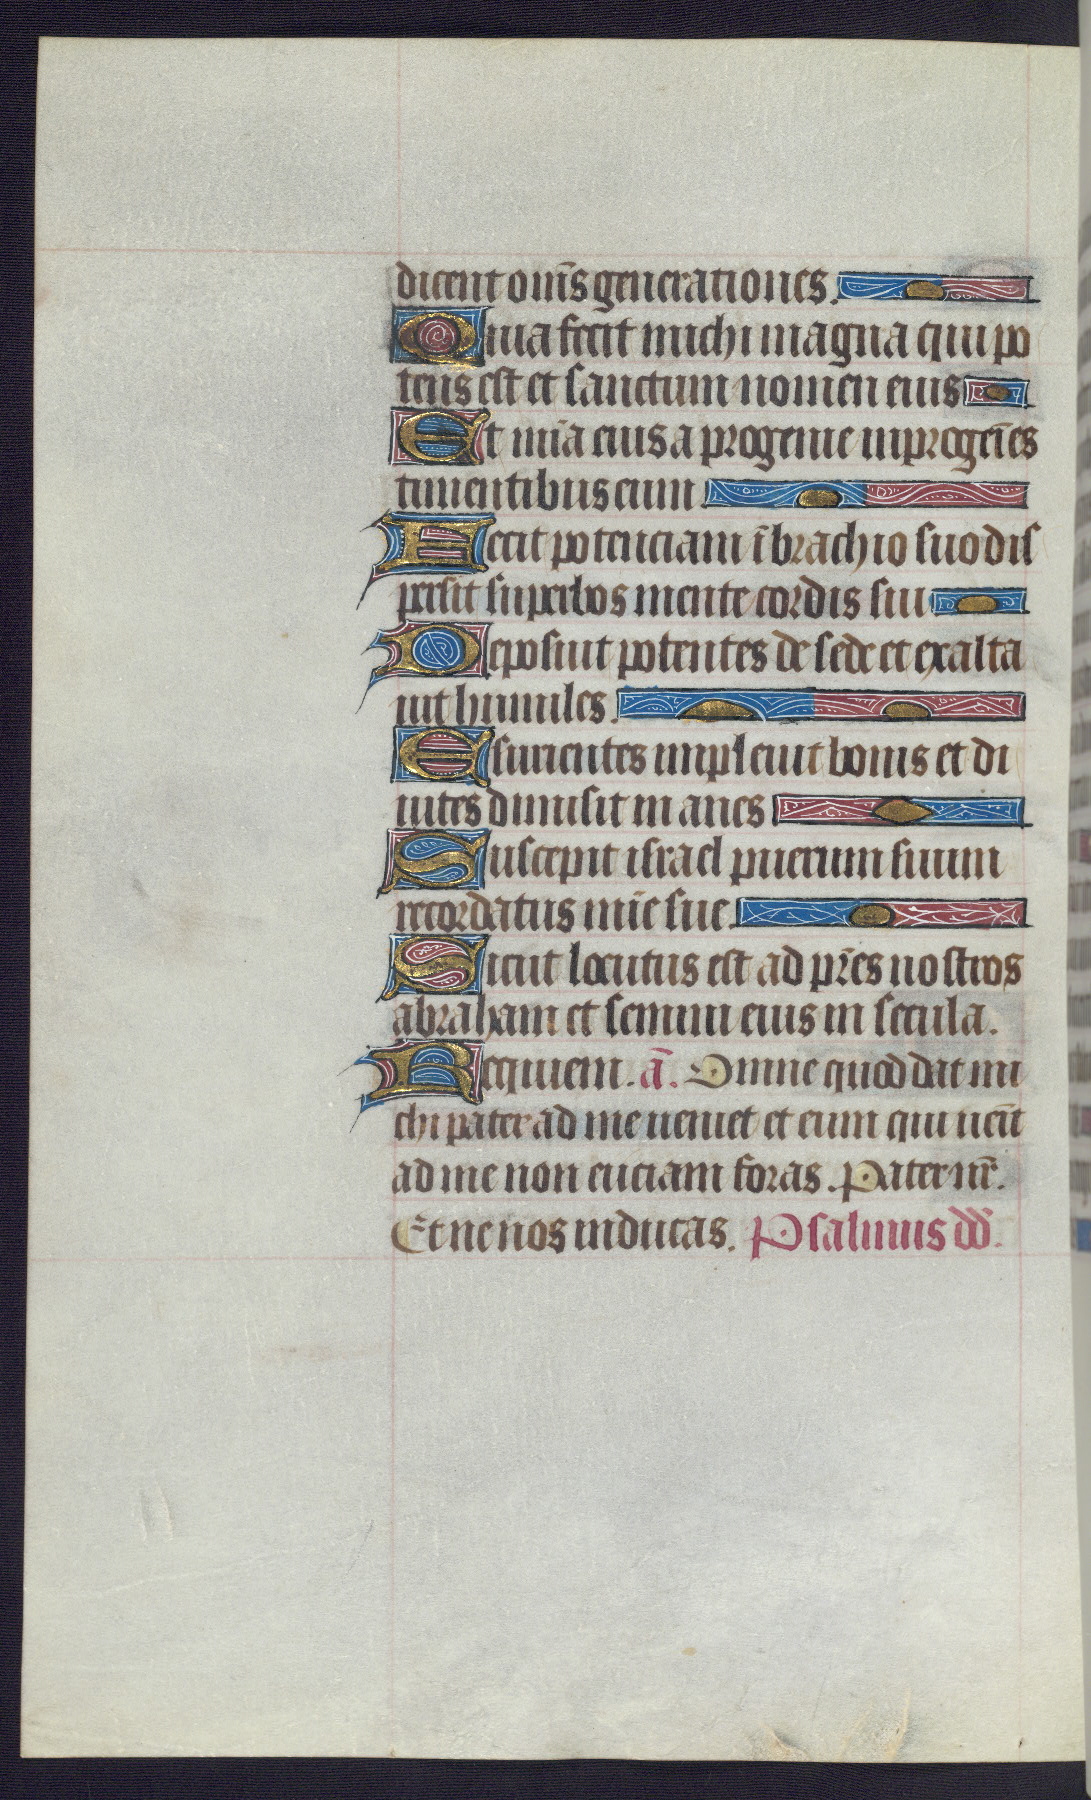 dicent om̄s generationes.
Quia fecit michi magna qui po
tens est et sanctum nomen eius
Et mīa eius a progenie in progeīes
timentibus eum
Fecit potenciam ī brachio suo dis
persit superbos mente cordis sui
Deposuit potentes de sede et exalta
uit humiles.
Esurientes impleuit bonis et di
uites dimisit inanes
Suscepit israel puerum suum
recordatus mīe sue.
Sicut locutus est ad pr̄es nostros
abraham et semini eius in secula.
Requiem. ā. Omne quod dat mi
chi pater ad me ueniet et eum qui uenit
ad me non eiciam foras. Pater nr̄.
Et ne nos inducas. Psalmus dd̄.